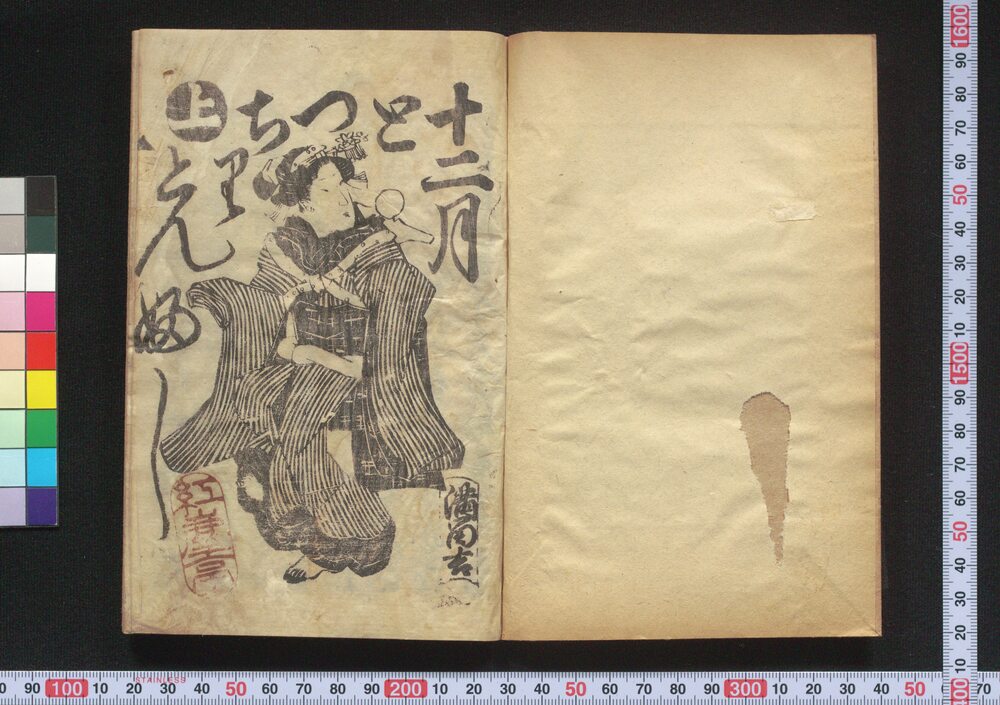 十二月
とつち
里
とん婦し
上
STAINLESS
90 100 10 20 30 40 50 60 70 80 90 200 10 20 30 40 50 60 70 80 90 300 10 20 30 40 50 70
1600 90 80 70 60 50 40 30 20 10 1500 90 80 70 60 50 40 30 20 10